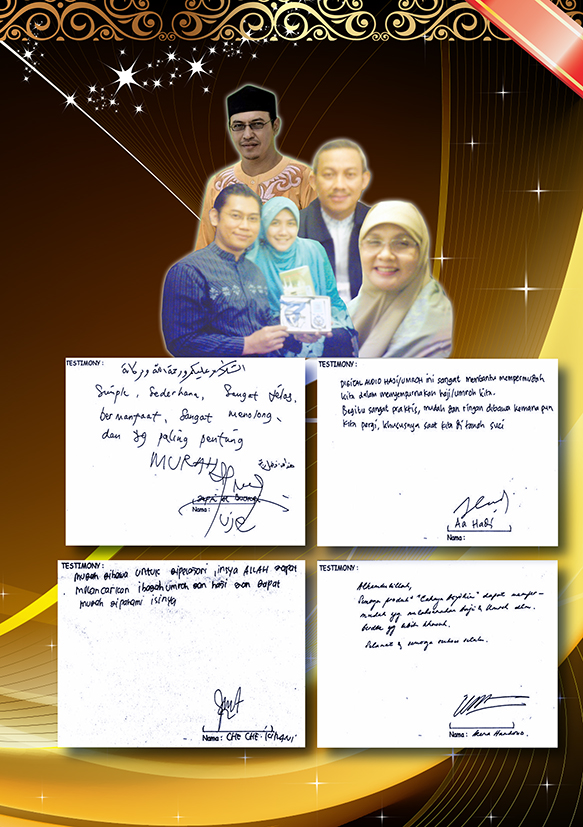 TESTIMONY :
السلام عليكم ورحمة الله وبركاته
Simple, Sederhana, Sangat Jelas,
bermanfaat, Sangat menolong,
dan yg paling penting
MURAH
Nama :
Uje
TESTIMONY :
DIGITAL AUDIO HAJI/UMROH ini sangat membantu mempermudah
kita dalam menyempurnakan haji/umroh kita.
Begitu sangat praktis, mudah dan ringan dibawa kemana pun
kita pergi, khususnya saat kita di tanah suci
Aa Hadi
Nama :
TESTIMONY :
mudah dibawa untuk dipelajari, insya ALLAH dapat
melancarkan ibadah umroh dan haji dan dapat
mudah dipahami isinya
Nama : CHE CHE
TESTIMONY :
Alhamdulillah,
Semoga produk " " dapat memper-
mudah yg melaksanakan haji & Umroh
yg lebih khusuk.
Selamat & semoga sukses selalu.
Nama : Handoso